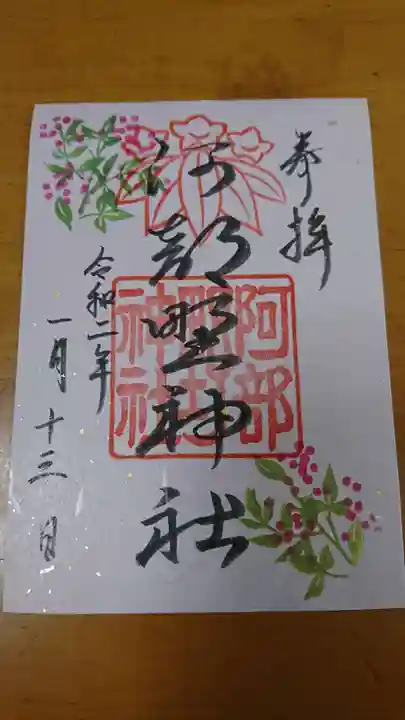 奉拝
阿部野神社
阿部野神社
令和二年
一月十三日